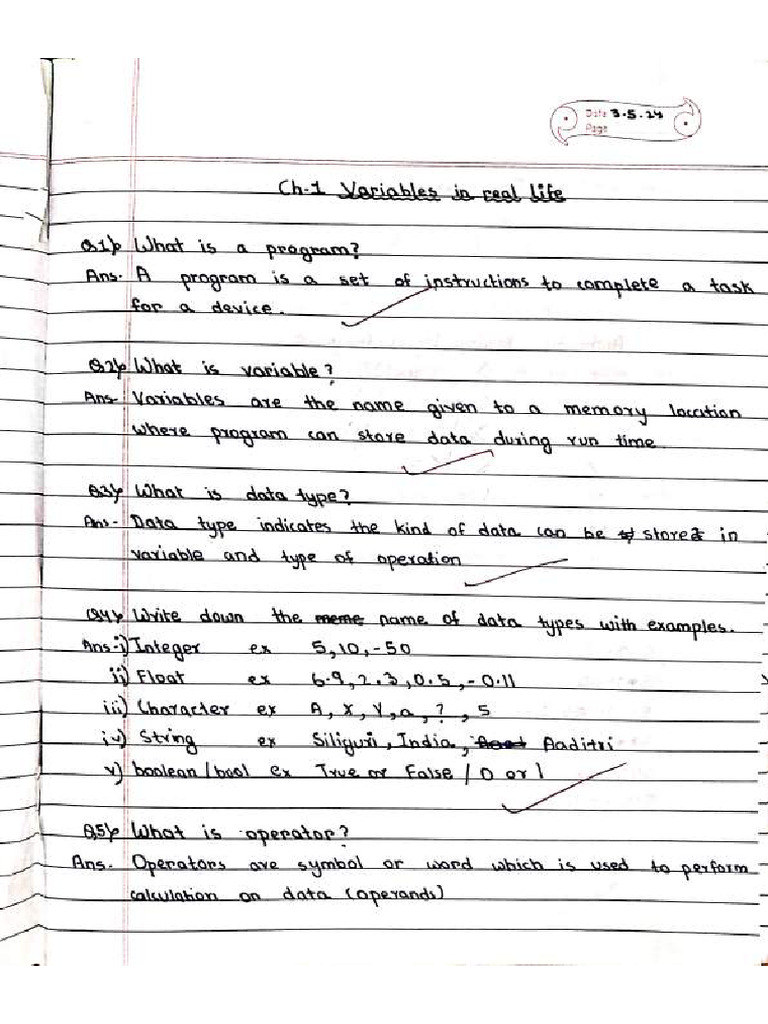 Date 3.5.24
Page
Ch-1 Variables in real life
Q.1) What is a program?
Ans. A program is a set of instructions to complete a task
for a device.
Q.2) What is variable?
Ans- Variables are the name given to a memory location
where program can store data during run time.
Q.3) What is data type?
Ans- Data type indicates the kind of data can be stored in
variable and type of operation
Q.4) Write down the name of data types with examples.
Ans-i) Integer ex 5, 10, -50
ii) Float ex 6.9, 2.3, 0.5, -0.11
iii) Character ex A, X, Y, a, ?, 5
iv) String ex Siliguri, India, Aaditri
v) boolean/bool ex True or False / 0 or 1
Q.5) What is operator?
Ans. Operators are symbol or word which is used to perform
calculation on data (operands)